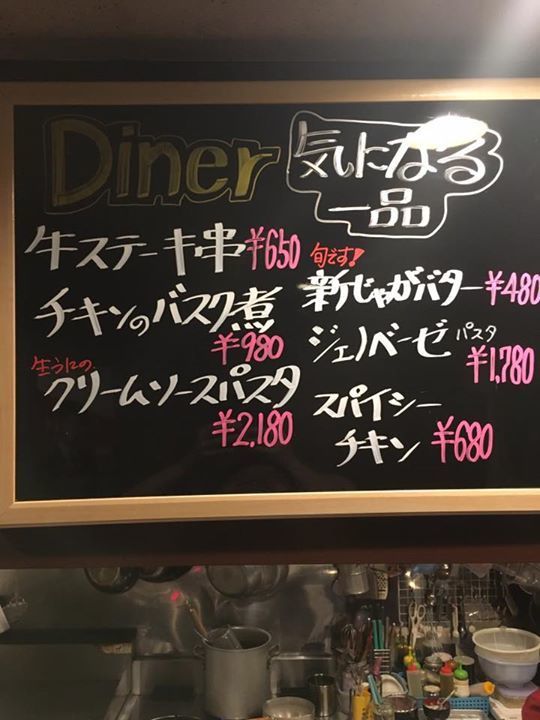 Diner
気になる
一品
牛ステーキ串 ¥650
チキンのバスク煮
¥980
生うにの
クリームソースパスタ
¥2,180
旬です!
新じゃがバター ¥480
ジェノベーゼ パスタ
¥1,780
スパイシー
チキン ¥680